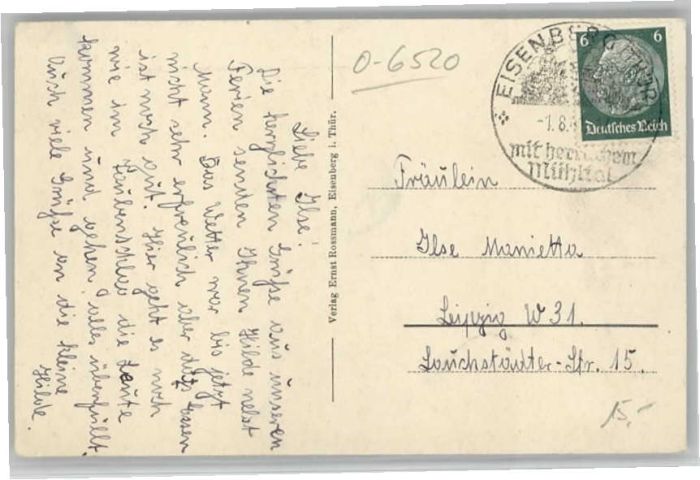 Liebe Ilse!
Die herzlichsten Grüße aus unseren
Ferien senden Ihnen Hilde nebst
Mann. Das Wetter war bis jetzt
nicht sehr erfreulich aber das Essen
ist noch gut. Hier geht es noch
wie im Taubenschlag die Leute
kommen und gehen, alles überfüllt.
Auch viele Grüße an die Kleine
Hilde.
Verlag Ernst Rossmann, Eisenberg i. Thür.
O-6520
EISENBERG THÜR
-1.8.
mit herrlichem
Mühltal
6 6
Deutsches Reich
Fräulein
Ilse Manietta
Leipzig W 31.
Lauchstädter-Str. 15.
15,-